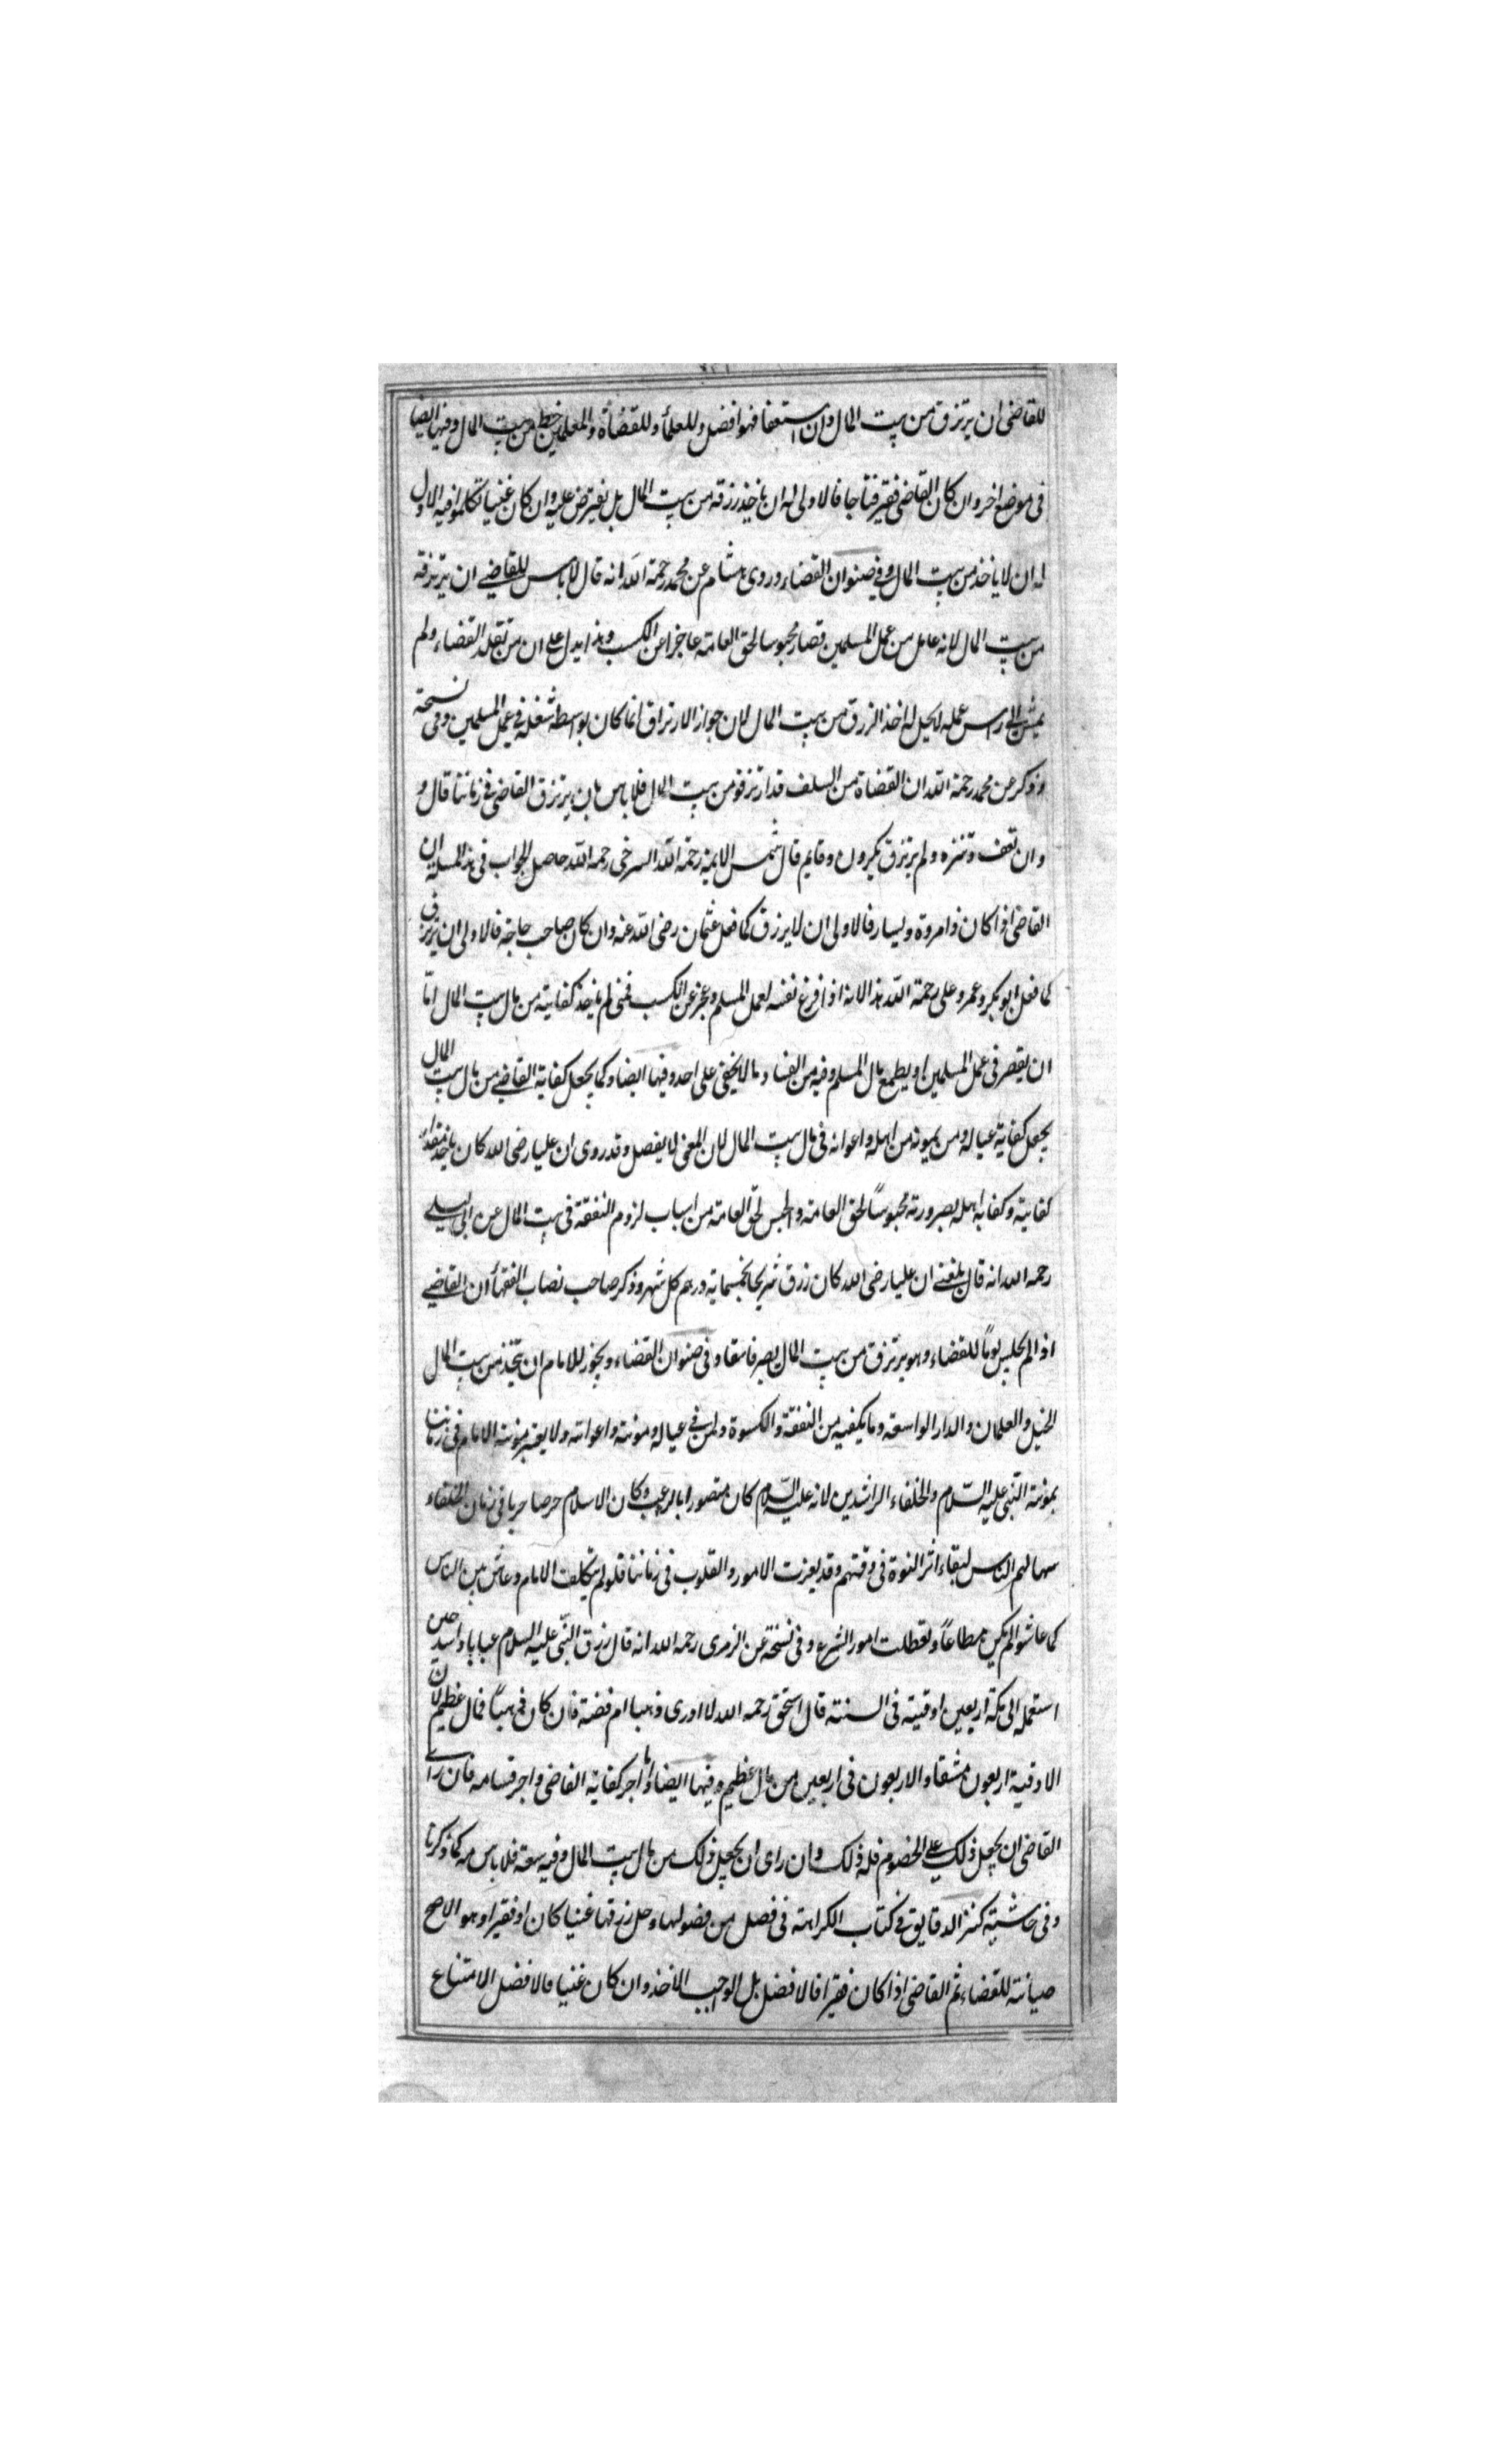 للقاضی ان یرتزق من بیت المال وان استعفا فهو افضل وللعلماء وللقضاة والمعلمین حظ من بیت المال وفیها ایضا
فی موضع اخر وان کان القاضی فقیر فتاجا فالاولی له ان یاخذ رزقه من بیت المال بل یفترض علیه وان کان غنیا تکلموا فیه الاولی
له ان لا یاخذ من بیت المال وفی صنوان القضاء وروی هشام عن محمد رحمة الله انه قال لا باس للقاضی ان یرتزقه
من بیت المال لانه عامل من عمل المسلمین فصار محبوسا لحق العامة عاجزا عن الکسب وهذا یدل علی ان من تقلد القضاء ولم
یمش الی راس عمله لا یحل له اخذ الرزق من بیت المال لان جواز الارتزاق انما کان بواسطة شغله فی عمل المسلمین وفی نسخة
وذکر عن محمد رحمة الله ان القضاة من السلف قد ارتزقوا من بیت المال فلا باس بان یرتزق القاضی فی زماننا قال و
وان تعفف وتنزه ولم یرتزق یکرون وقایم قال شمس الایمة رحمة الله السرخی رحمه الله حاصل الجواب فی هذا المسلة ان
القاضی اذا کان ذا مروة ولیسار فالاولی ان لا یرزق کما فعل عثمان رضی الله عنه وان کان صاحب حاجة فالاولی ان یرتزق
کما فعل ابو بکر وعمر وعلی رحمة الله هذا لانه اذا فرغ نفسه لعمل المسلم وعجز عن الکسب فمتی لم یاخذ کفایته من مال بیت المال اما
ان یقصر فی عمل المسلمین او یطمع مال المسلم وفیه من الفساد ما لا یخفی علی احد وفیها ایضا وکما یجعل کفایة القاضی من مال بیت المال
یجعل کفایة عیاله ومن یمونه من اهله واعوانه فی مال بیت المال لان المعنی لا یفصل وقد روی ان علیا رضی الله کان یاخذ مقدار
کفایته وکفایة اهله لصیرورته محبوسا لحق العامة والحبس لحق العامة من اسباب لزوم النفقة فی بیت المال عن ابی لیلی
رحمه الله انه قال بلغنی ان علیا رضی الله کان رزق شریحا بخمسمایة درهم کل شهر وذکر صاحب نصاب الفقها ان القاضی
اذا لم یجلس یوما للقضاء وهو یرتزق من بیت المال یصیر فاسقا وفی صنوان القضاء ویجوز للامام ان یتخذ من بیت المال
الخیل والغلمان والدار الواسعة وما یکفیه من النفقة والکسوة ولمن فی عیاله ومونته واعوانه ولا یعتبر مونته الامام فی زماننا
بمونة النبی علیه السلام والخلفاء الراشدین لانه علیه السلام کان منصورا بالرعب وکان الاسلام حرصا حربا فی زمان الخلفاء
سهالهم الناس لبقاء اثر النبوة فی وقتهم وقد یعزت الامور والقلوب فی زماننا فلو لم یتکلف الامام وعاش بین الناس
کما عاشوا لم یکن مطاعا وتعطلت امور الشرع وفی نسخة عن الزهری رحمه الله انه قال رزق النبی علیه السلام عبابا واسید حین
استعمله الی مکة اربعین اوقیة فی السنة قال اسحق رحمه الله لا ادری ذهبا ام فضة فان کان ذهبا فمال عظیم لان
الاوقیة اربعون مثقالا والاربعون فی اربعین من مال عظیم وفیها ایضا واما اجر کفایة القاضی واجر قسامه فان رای
القاضی ان یجعل ذلک علی الخصوم فله ذلک وان رای ان یجعل ذلک من مال بیت المال وفیه سعة فلا باس به کما ذکرنا
وفی حاشیة کنز الدقایق فی کتاب الکراهة فی فصل من فصولها وحل رزقها غنیا کان او فقیرا وهو الاصح
صیانة للقضاء ثم القاضی اذا کان فقیرا فالافضل بل الواجب الاخذ وان کان غنیا فالافضل الامتناع